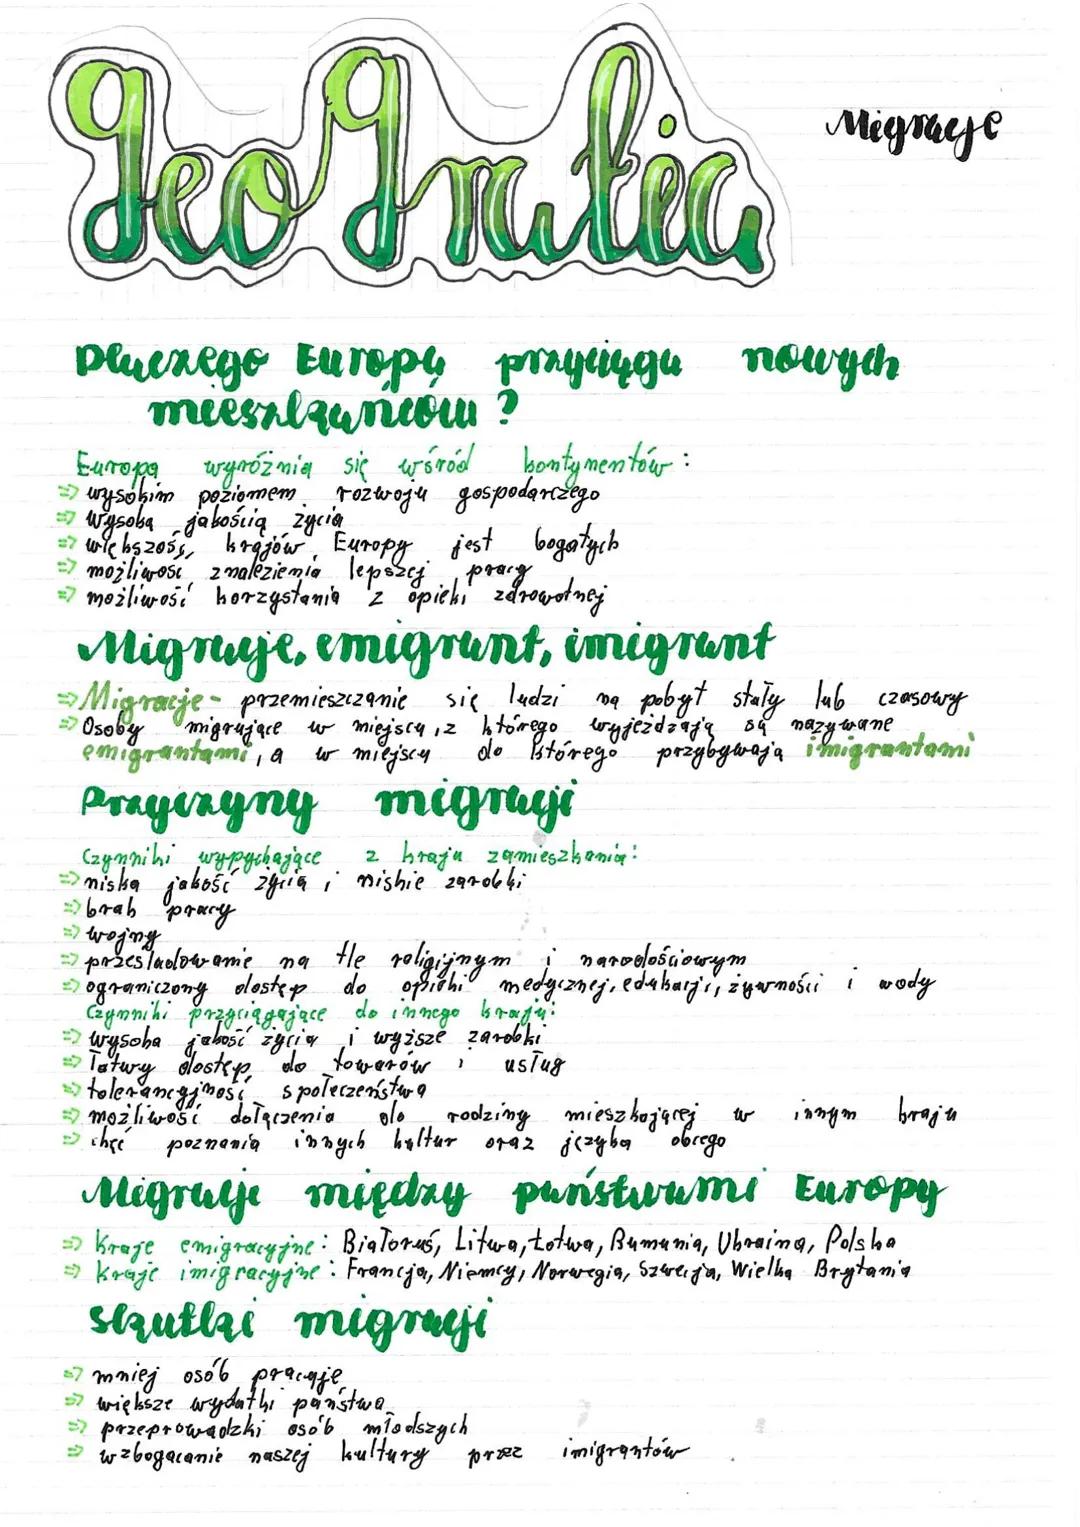 Geografia
Migracje
Dlaczego Europa przyciąga nowych
mieszkańców?
Europa wyróżnia się wśród kontynentów:
⇒ wysokim poziomem rozwoju gospodarczego
⇒ wysoką jakością życia
⇒ większość krajów Europy jest bogatych
⇒ możliwość znalezienia lepszej pracy
⇒ możliwość korzystania z opieki zdrowotnej
Migracje, emigrant, imigrant
⇒ Migracje - przemieszczanie się ludzi na pobyt stały lub czasowy
⇒ Osoby migrujące w miejscu, z którego wyjeżdżają są nazywane
emigrantami, a w miejscu do którego przybywają imigrantami
Przyczyny migracji
Czynniki wypychające z kraju zamieszkania:
⇒ niska jakość życia i niskie zarobki
⇒ brak pracy
⇒ wojny
⇒ prześladowanie na tle religijnym i narodościowym
⇒ ograniczony dostęp do opieki medycznej, edukacji, żywności i wody
Czynniki przyciągające do innego kraju:
⇒ wysoka jakość życia i wyższe zarobki
⇒ Łatwy dostęp do towarów i usług
⇒ tolerancyjność społeczeństwa
⇒ możliwość dołączenia do rodziny mieszkającej w innym kraju
⇒ chęć poznania innych kultur oraz języka obcego
Migracje między państwami Europy
⇒ kraje emigracyjne: Białoruś, Litwa, Łotwa, Rumunia, Ukraina, Polska
⇒ kraje imigracyjne: Francja, Niemcy, Norwegia, Szwecja, Wielka Brytania
skutki migracji
⇒ mniej osób pracuje
⇒ większe wydatki państwa
⇒ przeprowadzki osób młodszych
⇒ wzbogacanie naszej kultury przez imigrantów